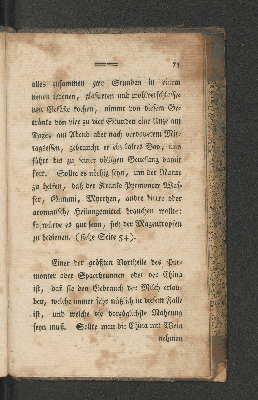 75
alles zusammen zwo Stunden in einem
neuen irdenen, glasurten und wohlverschlosse-
nen Gefäße kochen, nimmt von diesem Ge-
tränke von vier zu vier Stunden eine Unze am
Tage; am Abend aber nach verdautem Mit-
tagsessen, gebraucht er ein laltes Bad, und
fährt bis zu seiner völligen Genesung damit
fort. Sollte es nöthig seyn, um der Natur
zu helfen, daß der Kranke Pyrmonter Was-
ser, Gummi, Myrrhen, andre bittre oder
aromatische Heilungsmittel brauchen wollte:
so würde es gut seyn, sich der Magentropfen
zu bedienen. (siehe Seite 54).
Einer der größten Vortheile des Pyr-
monter oder Spaerbrunnen oder der China
ist, daß sie den Gebrauch der Milch erlau-
ben, welche immer sehr nützlich in diesem Falle
ist, und welche die vorzüglichste Nahrung
seyn muß. Sollte man die China mit Wein
nehmen